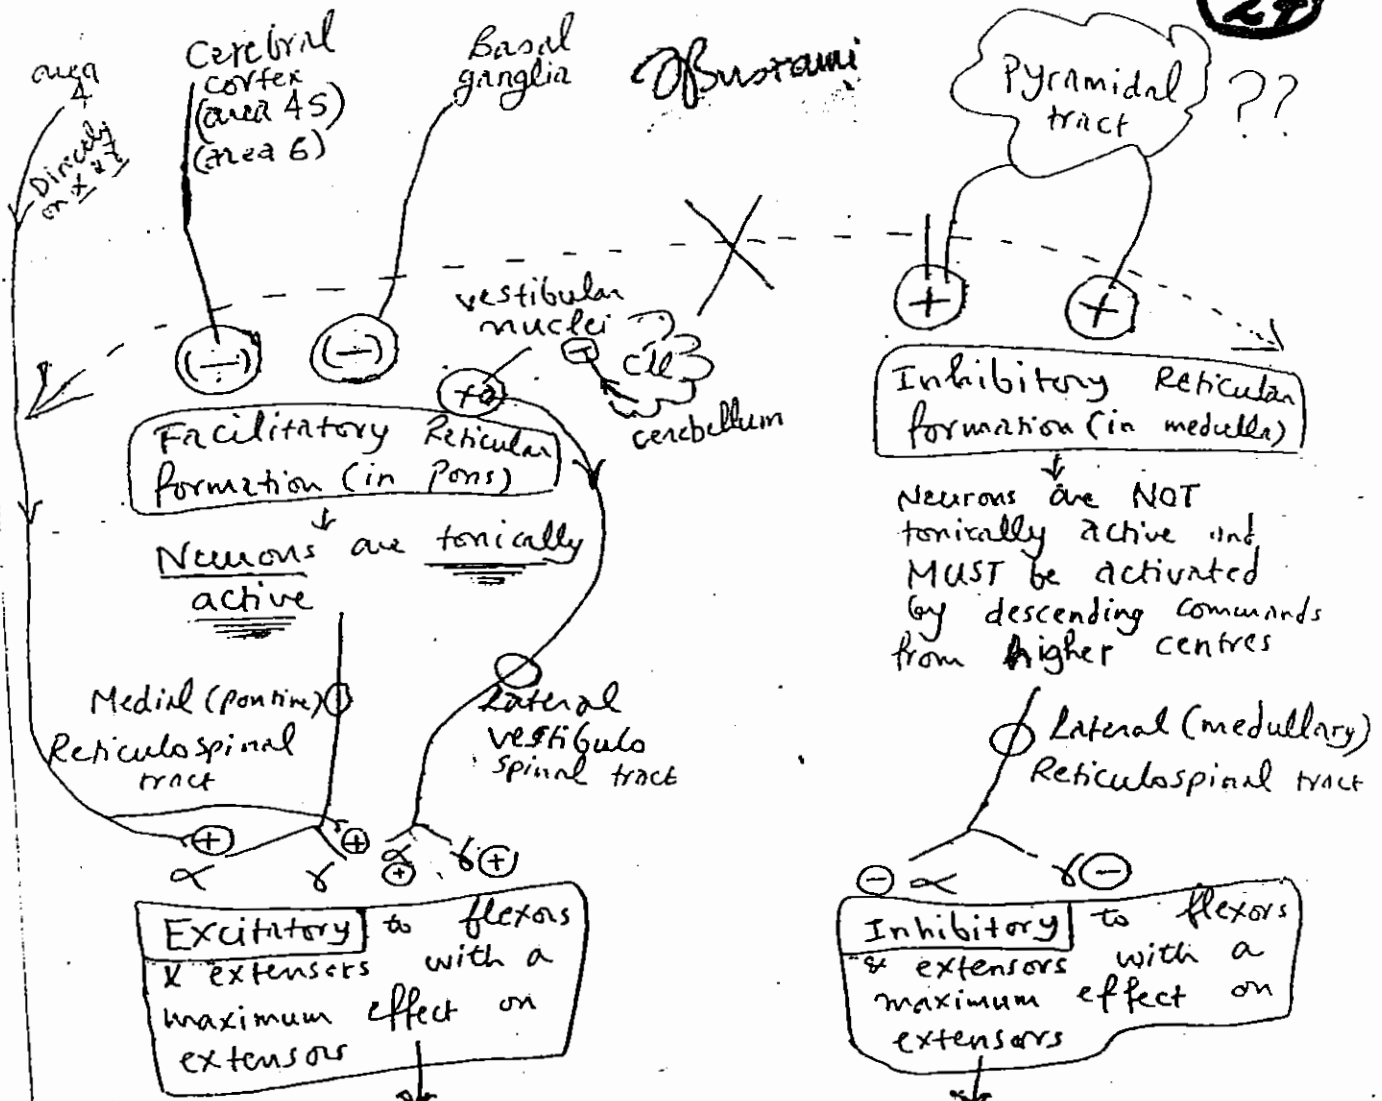 24
area
4
Directly
on α & γ
Cerebral
cortex
(area 4S)
(area 6)
Basal
ganglia
Bustami
Pyramidal
tract
??
(-)
(-)
vestibular
nuclei
-
+
cerebellum
+
+
Facilitatory Reticular
formation (in Pons)
Neurons are tonically
active
Inhibitory Reticular
formation (in medulla)
Neurons are NOT
tonically active and
MUST be activated
by descending commands
from higher centres
Medial (pontine)
Reticulospinal
tract
Lateral
vestibulo
spinal tract
Lateral (medullary)
Reticulospinal tract
+ + + +
α γ α γ
- α γ -
Excitatory to flexors
& extensors with a
maximum effect on
extensors
Inhibitory to flexors
& extensors with a
maximum effect on
extensors